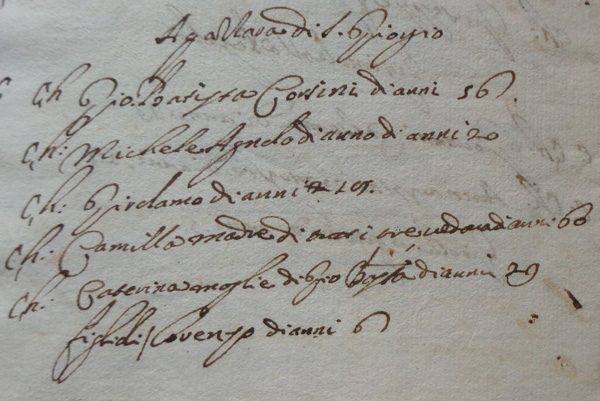 di S. Giorgio
Ch Gio: Batista Corsini di anni 56
Ch: Michele Agnolo di anni 20
Ch: Girolamo di anni
Ch: Camilla madre di vedova di anni 60
Ch: Caterina moglie di Gio Bapta di anni 29
figli di Lorenzo di anni 6